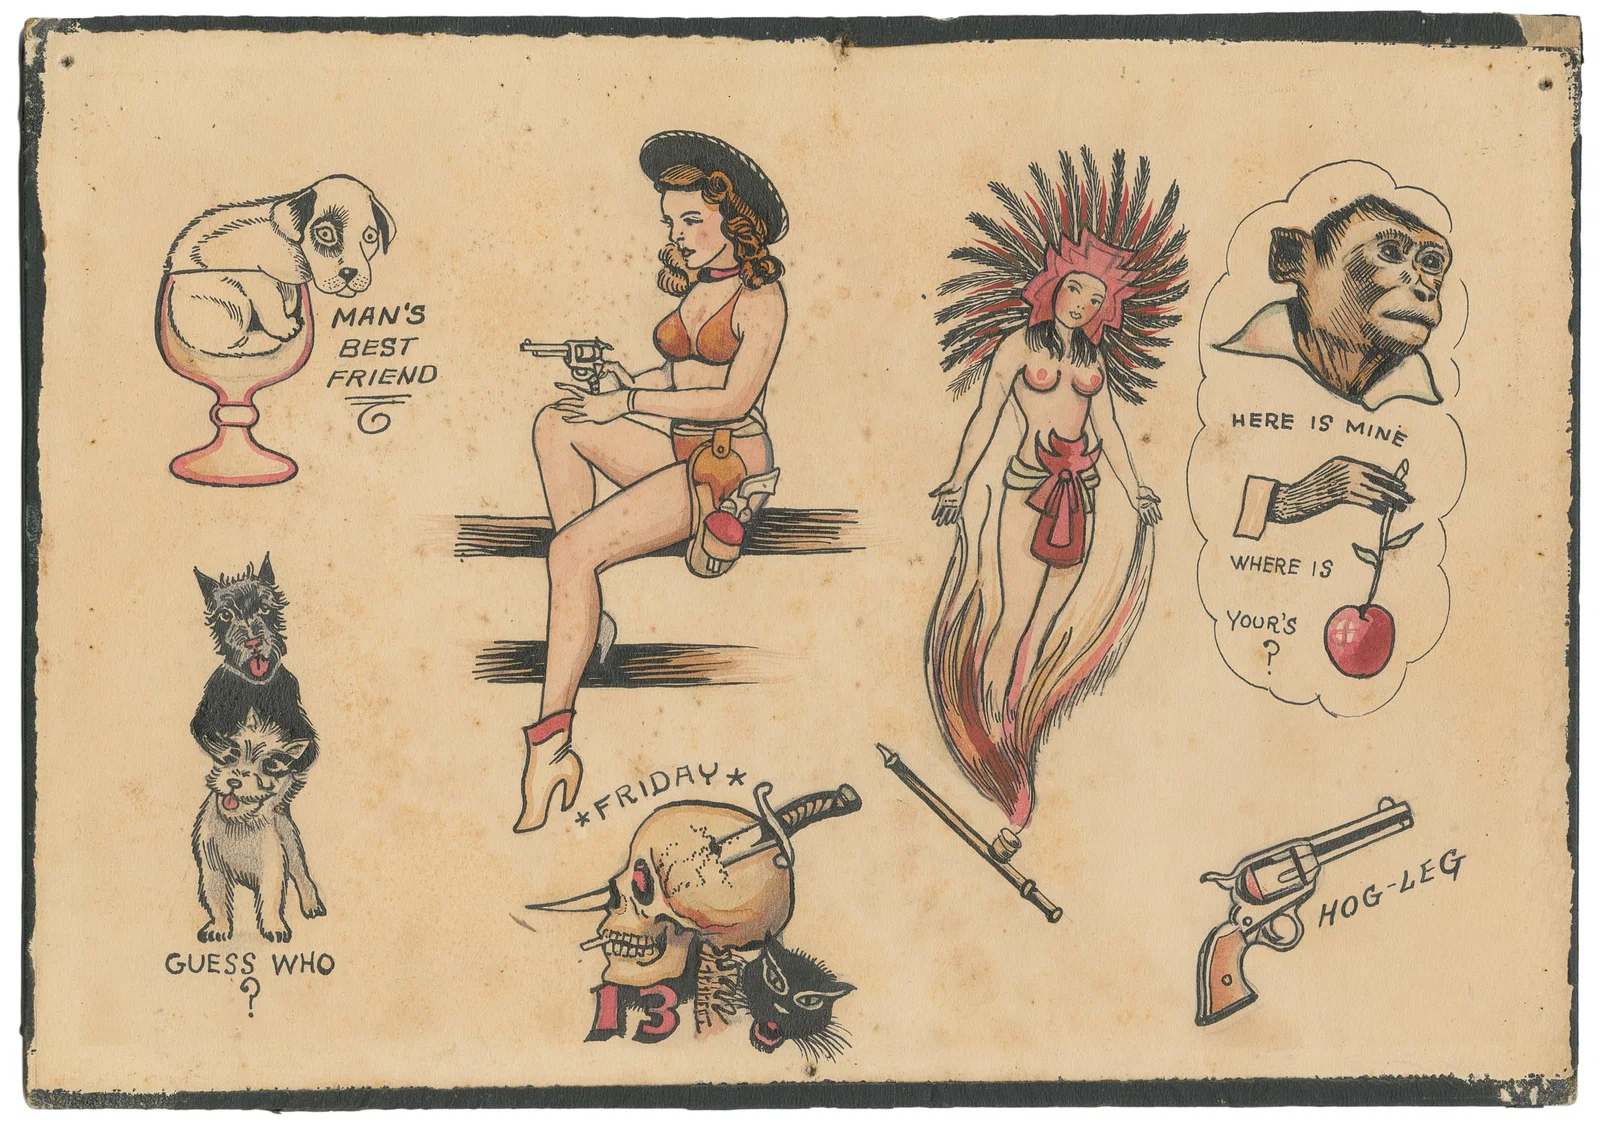 MAN'S
BEST
FRIEND
HERE IS MINE
WHERE IS
YOUR'S
?
*FRIDAY*
13
HOG-LEG
GUESS WHO
?